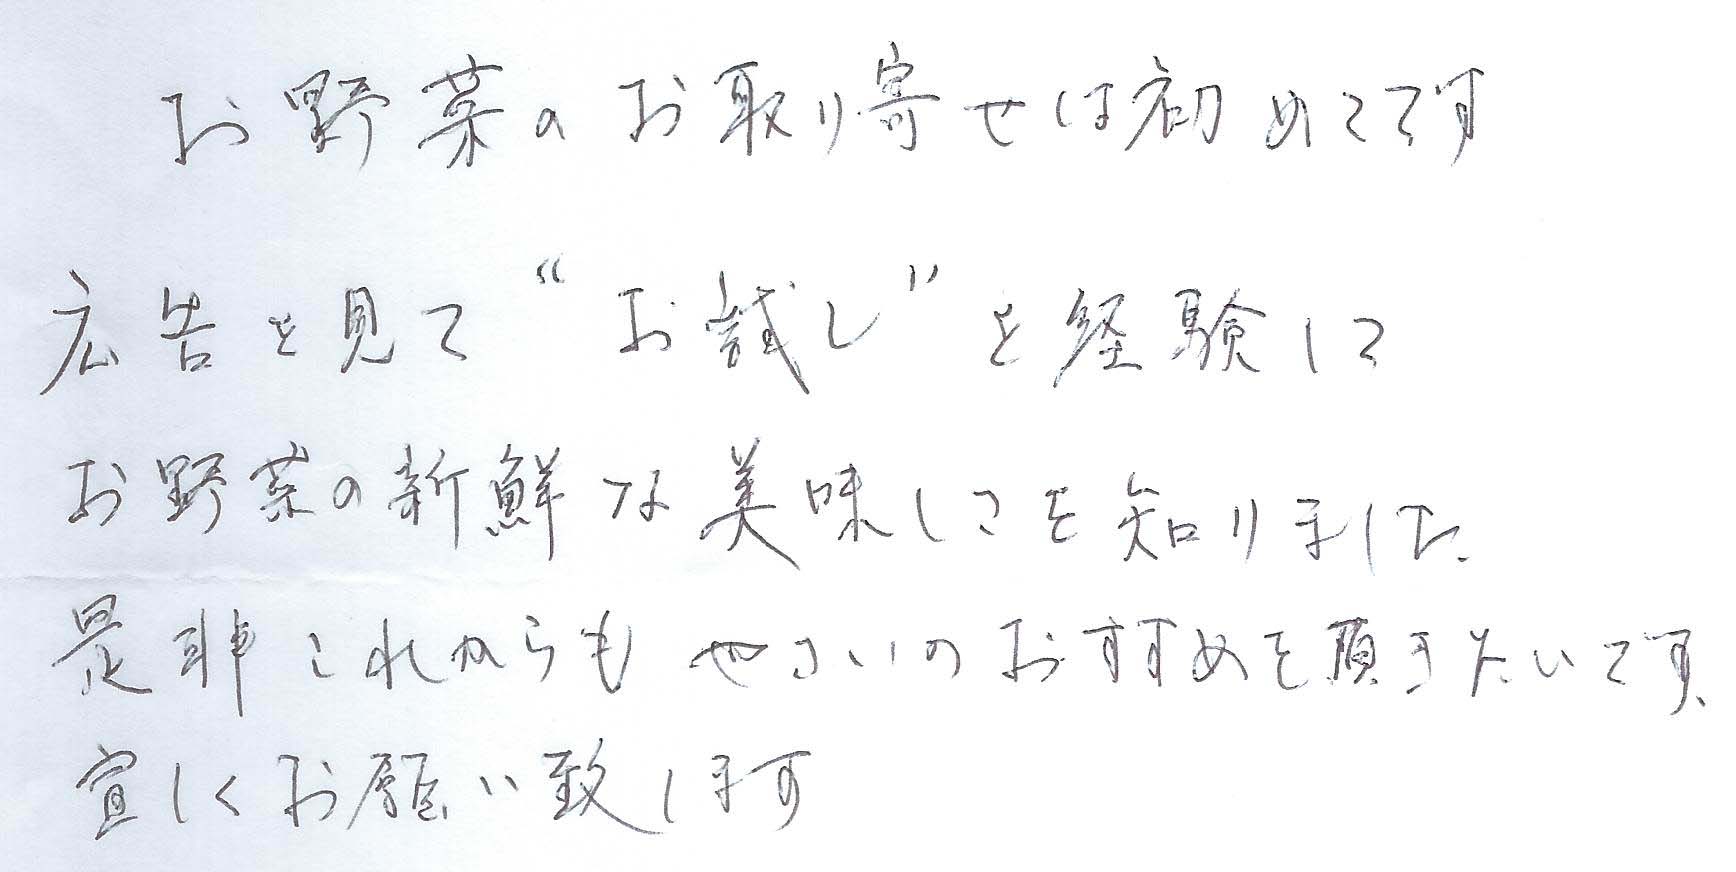 お野菜のお取り寄せは初めてです
広告を見て“お試し”を経験して
お野菜の新鮮な美味しさを知りました、
是非これからもやさいのおすすめを頂きたいです、
宜しくお願い致します